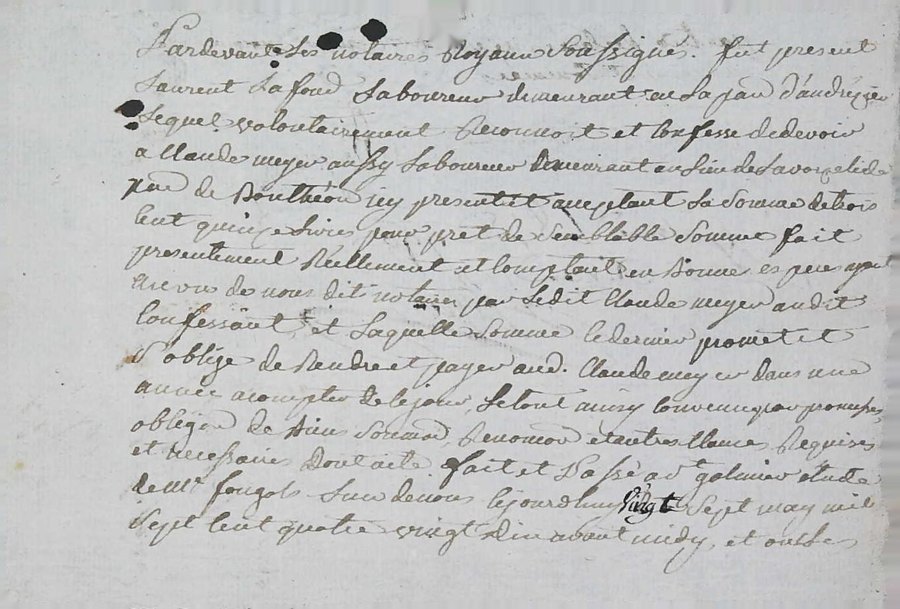 Pardevant Les notaires Royaux Soussignés. fut present
Laurent Lafond Laboureur demeurant en La par d'andrézieu
Lequel volontairement Reconnoit et Confesse de devoir
a Claude meyer aussy Laboureur demeurant au Lieu de
de Bouthéon icy present et acceptant La Somme de trois
Cent quinze Livres pour pret de Semblable Somme fait
presentement Réellement et Comptant en Bonnes especes ayant
de nous dit notaires par Ledit Claude meyer audit
Confessant, et Laquelle Somme le dernier promet et
S'oblige de Rendre et payer aud. Claude meyer dans une
année a compter de Ce jour, Le tout ainsy Convenu par promesses
obligõn de Biens et autres Clauses Requises
et necessaires Dont acte fait et Passé a St galmier etude
de Mr. fougols L'un de nous Cejourdhuy Vingt Sept may mil
Sept Cent quatre vingt Dix avant midy, et ont Les